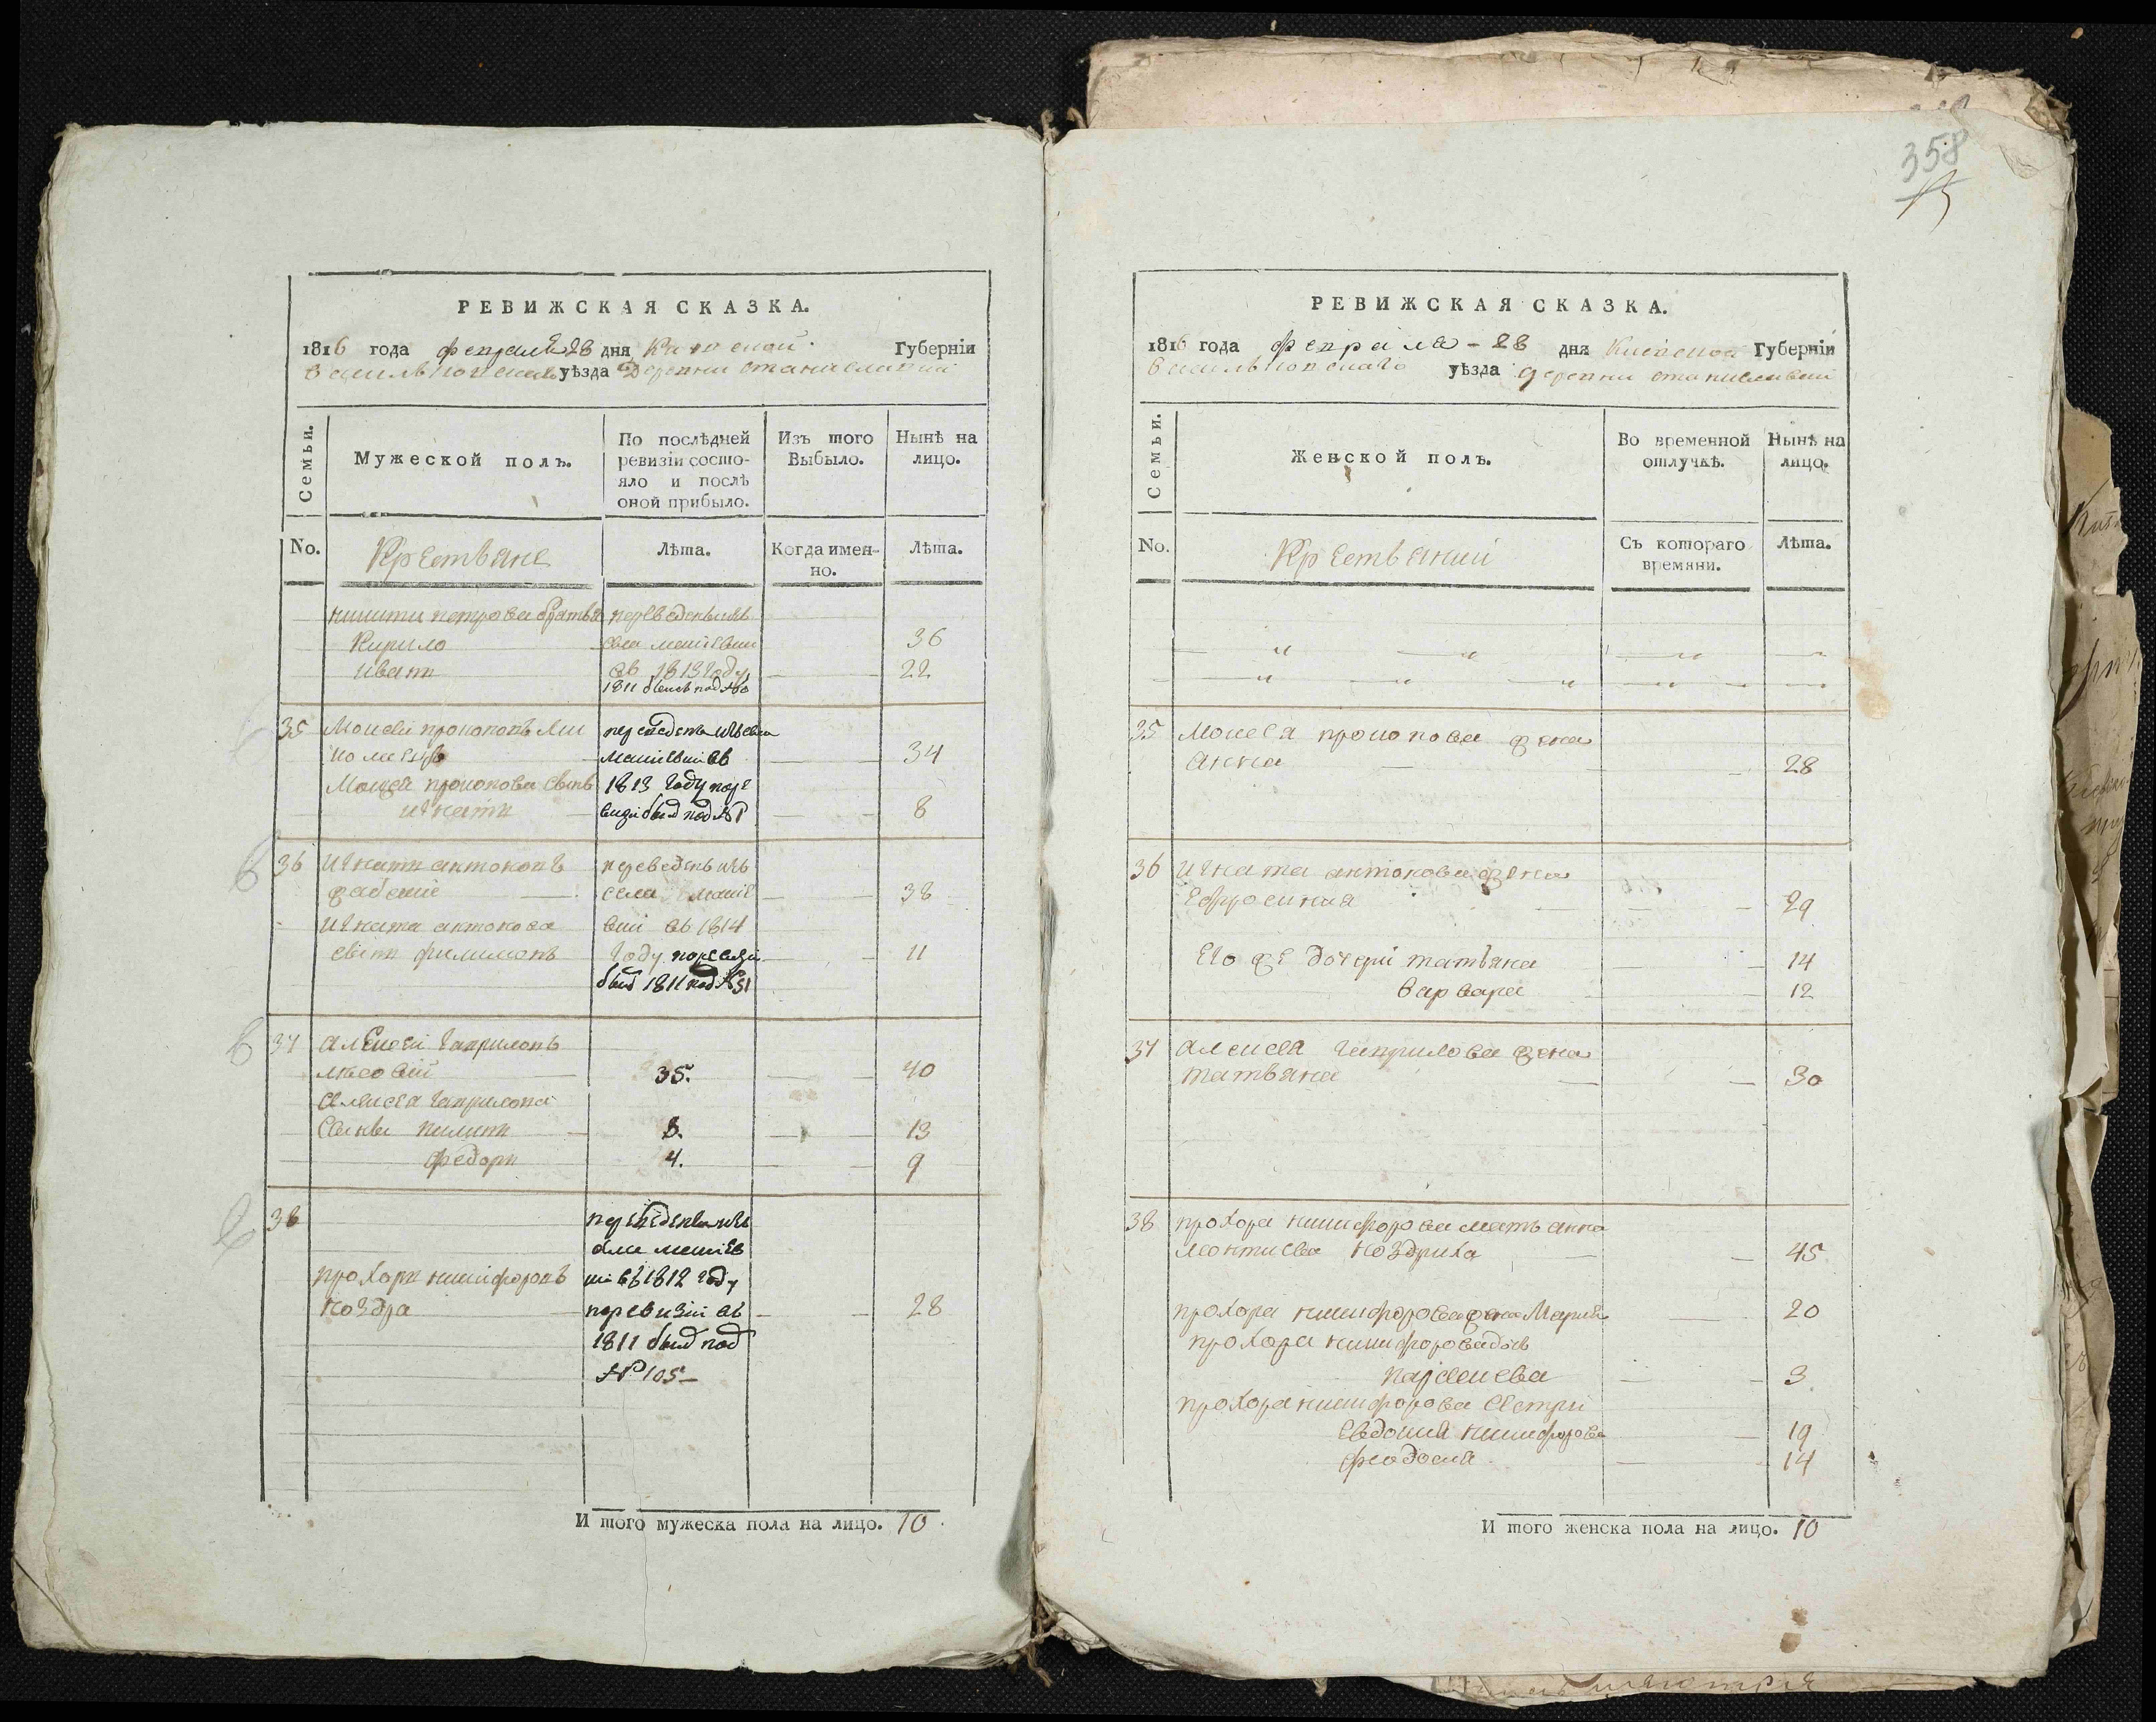 358
РЕВИЖСКАЯ СКАЗКА.
1816 года февраля 28 дня Киевской Губерніи
Васильковскаго уѣзда Деревни Станиславки
Семьи.
Мужеской полъ.
По послѣдней ревизіи состояло и послѣ оной прибыло.
Изъ того Выбыло.
Нынѣ на лицо.
No.
Крестьяне
Лѣта.
Когда именно.
Лѣта.
никити петрова братья переведены изъ
Кирило села 36
иванъ въ 1813 году 22
1811 под №
35 Моисей прокоповъ
въ 34
прокопова синъ 1813 году по ре
игнатъ визи был под № 8
36 игнатъ антоновъ переведенъ изъ
села 38
игната антонова въ 1814
синъ филимонъ году по ревизи 11
был 1811 под №
37 алексей гавриловъ
лѣсовий 35. 40
алексея гаврилова
синви пилипъ 8. 13
федоръ 4. 9
38 переведенъ изъ
села
прохоръ никифоровъ въ 1812 году
ноздра по ревизіи въ 28
1811 был под
№ 105
И того мужеска пола на лицо. 10
РЕВИЖСКАЯ СКАЗКА.
1816 года февраля - 28 дня Киевской Губерніи
Васильковскаго уѣзда деревни Станиславки
Семьи.
Женской полъ.
Во временной отлучкѣ.
Нынѣ на лицо.
No.
Крестьянки
Съ котораго времяни.
Лѣта.
35 Моисея прокопова жена
анна 28
36 игната антонова жена
Ефросиния 29
Его же дочери татьяна 14
варвара 12
37 алексея гаврилова жена
татьяна 30
38 прохора никифорова мать анна
леонтиева ноздриха 45
прохора никифорова жена Мария 20
прохора никифорова дочь
параскева 3
прохора никифорова сестри
Евдокия никифорова 19
феодосия 14
И того женска пола на лицо. 10